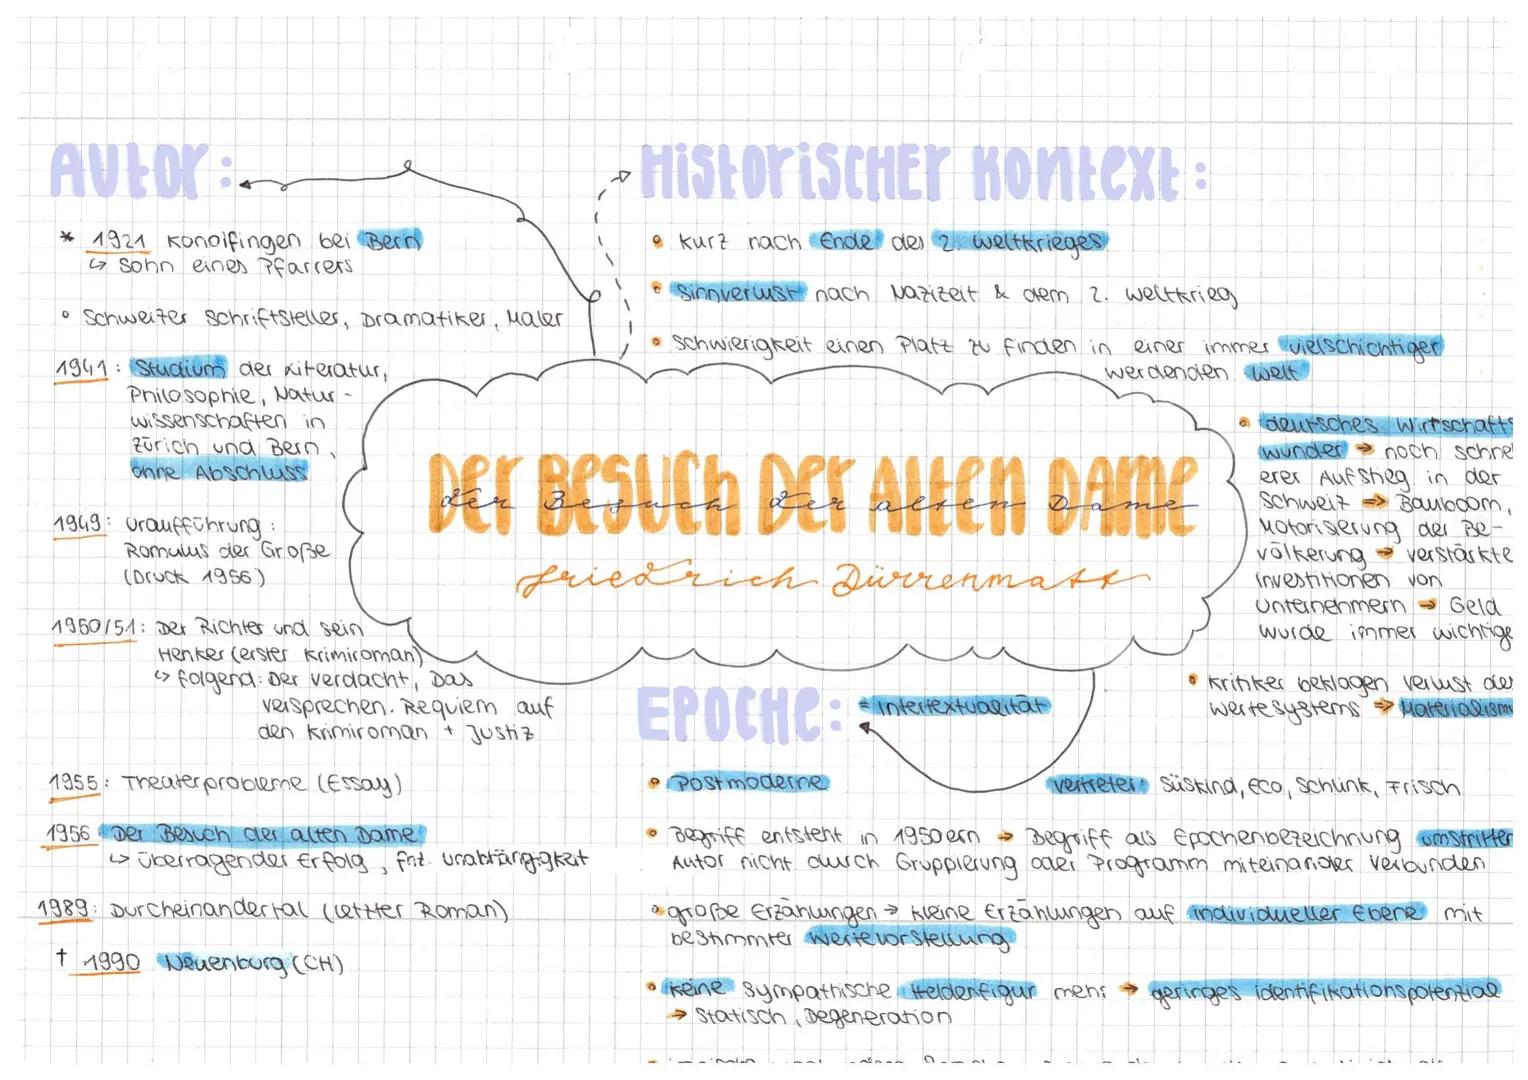 Autor:
* 1921 Konolfingen bei Bern
↳ Sohn eines Pfarrers
• Schweizer Schriftsteller, Dramatiker, Maler
1941: Studium der Literatur,
Philosophie, Natur-
wissenschaften in
Zürich und Bern,
ohne Abschluss
1949: Uraufführung:
Romulus der Große
(Druck 1956)
1950/51: Der Richter und sein
Henker (erster Krimiroman)
↳ folgend: Der Verdacht, Das
Versprechen. Requiem auf
den Krimiroman + Justiz
1955: Theaterprobleme (Essay)
1956 Der Besuch der alten Dame
↳ überragender Erfolg, fnz. Unabhängigkeit
1989: Durcheinandertal (letzter Roman)
† 1990 Neuenburg (CH)
Historischer Kontext:
• kurz nach Ende des 2. Weltkrieges
• Sinnverlust nach Nazizeit & dem 2. Weltkrieg
• Schwierigkeit einen Platz zu finden in einer immer vielschichtiger
werdenden Welt
• deutsches Wirtschafts
wunder → noch schne
erer Aufstieg in der
Schweiz → Bauboom,
Motorisierung der Be-
völkerung → verstärkte
Investitionen von
Unternehmern → Geld
wurde immer wichtige
• Kritiker beklagen Verlust des
Wertesystems → Materialism
Der Besuch der alten Dame
der Besuch der alten Dame
Friedrich Dürrenmatt
Epoche: = Intertextualität
• Postmoderne
Vertreter: Süskind, Eco, Schlink, Frisch
• Begriff entsteht in 1950ern → Begriff als Epochenbezeichnung umstritten
Autor nicht durch Gruppierung oder Programm miteinander verbunden
• große Erzählungen → kleine Erzählungen auf individueller Ebene mit
bestimmter Wertevorstellung
• keine sympathische Heldenfigur mehr → geringes Identifikationspotential
→ statisch, Degeneration